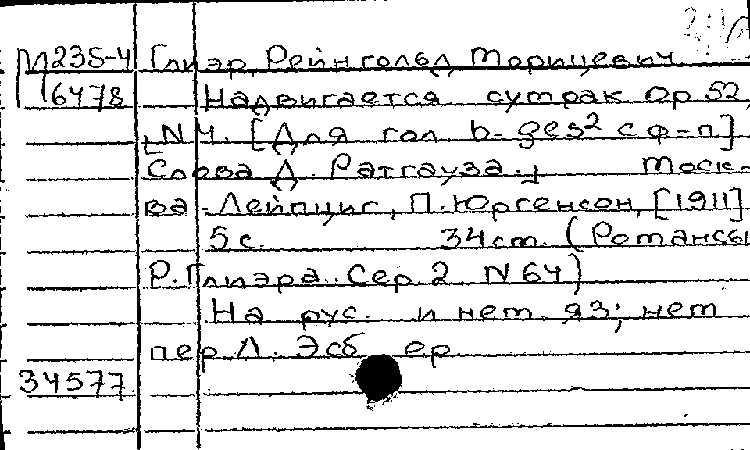 М235-4 Глиэр, Рейнгольд Морицевич
6478 Надвигается сутрак Op 52,
N4. [Для гол. b-ges² с ф-п]
Слова Д. Ратгауза. Моск-
ва-Лейпциг, П. Юргенсон, [1911]
5 с. 34 cm. (Романсы
Р. Глиэра. Сер 2 N 64)
На рус. и нем. яз; нем
пер Л. Эсб ер
34577